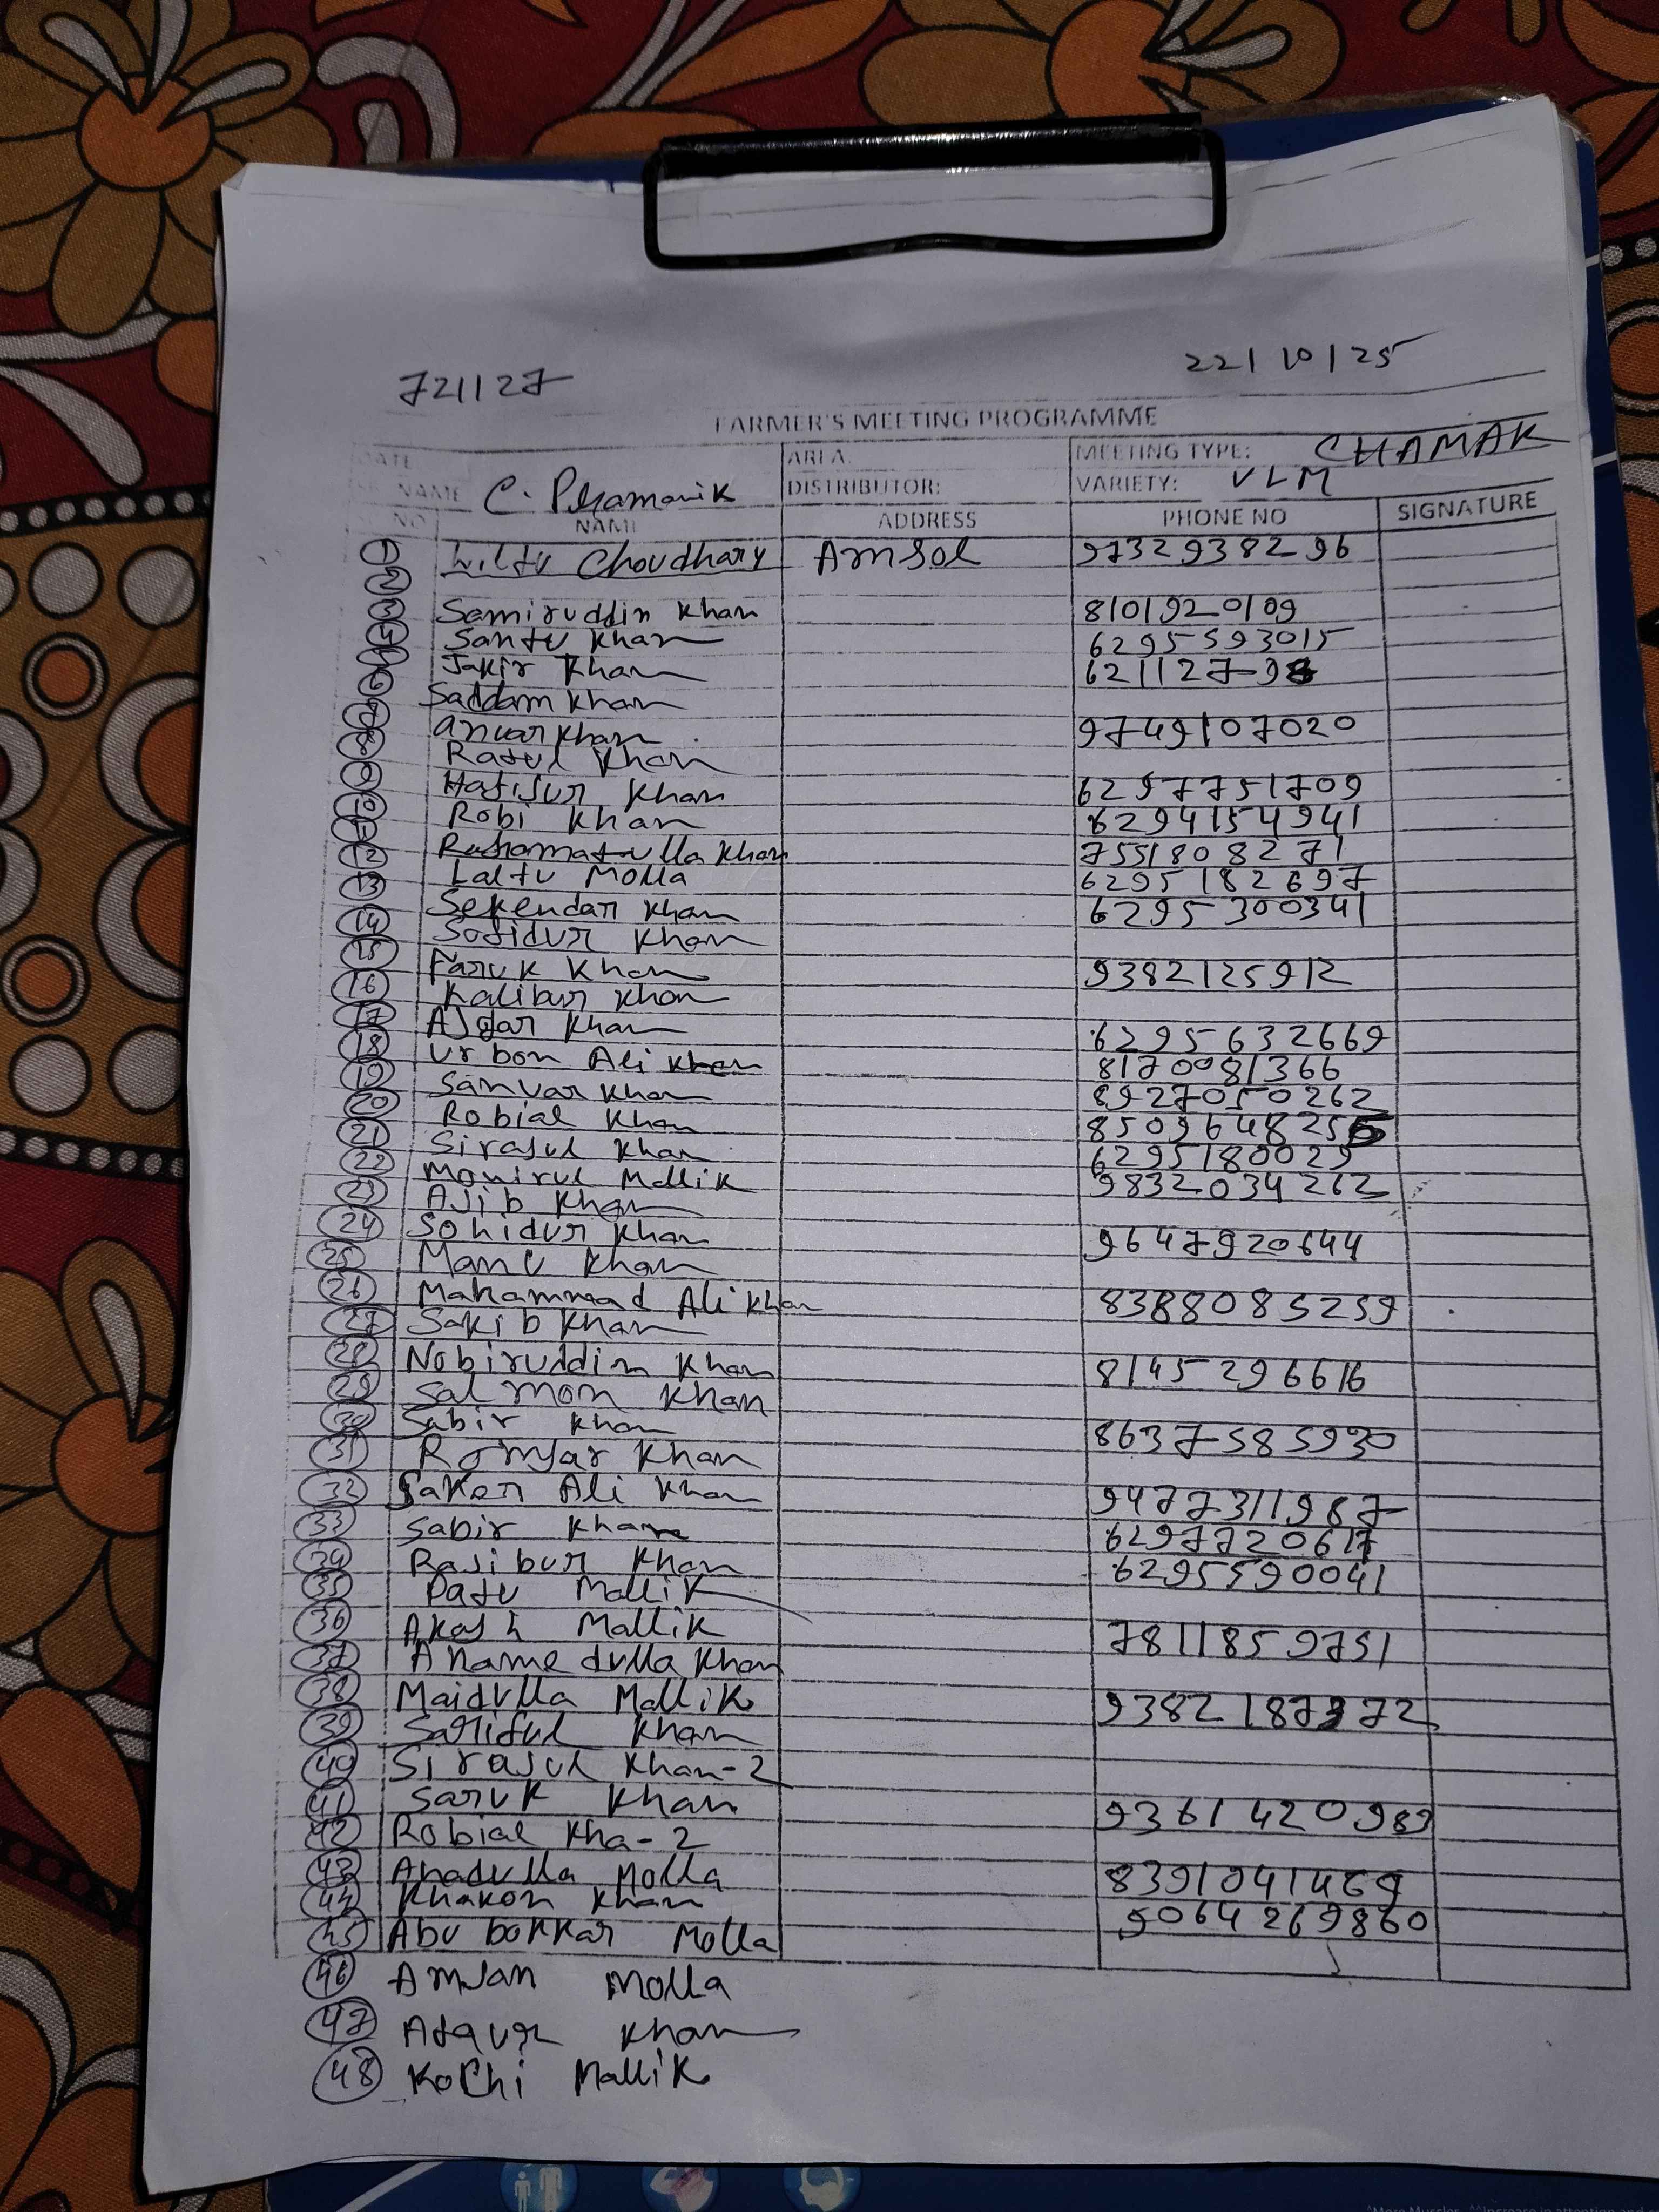 721127
22/10/25
FARMER'S MEETING PROGRAMME
DATE AREA: MEETING TYPE: CHAMAK
NAME C. Pramanik DISTRIBUTOR: VARIETY: VLM
NO NAME ADDRESS PHONE NO SIGNATURE
1 Choudhary Amsol 9732938296
2
3 Samiruddin Khan 8101920109
4 Santu Khan 6295593015
5 Jakir Khan 62112798
6 Saddam Khan
7 Anuar Khan 9749107020
8 Raful Khan
9 Hafijur Khan 6297751709
10 Robi Khan 6294154941
11 Khan 7551808271
12 Laltu Molla 6295182697
13 Sekendar Khan 6295300341
14 Sofidur Khan
15 Faruk Khan 9382125912
16 Kalibur Khan
17 Ajgar Khan 6295632669
18 Urbon Ali Khan 8170081366
19 Sanuar Khan 8927050262
20 Robial Khan 8509648256
21 Sirajul Khan 6295180029
22 Monirul Mallik 9832034262
23 Ajib Khan
24 Sohidur Khan 9647920644
25 Manu Khan
26 Mahammad Ali Khan 8388085259
27 Sakib Khan
28 Nobiruddin Khan 8145296616
29 Salmon Khan
30 Sabir Khan 8637585930
31 Romjar Khan
32 Saker Ali Khan 9477311987
33 Sabir Khan 6297720617
34 Rajibur Khan 6295590041
35 Mallik
36 Akash Mallik 7811859751
37 Ahamedulla Khan
38 Maidulla Mallik 9382187372
39 Sariful Khan
40 Sirajul Khan-2
41 Saruk Khan 9361420989
42 Robial Kha-2
43 Ahadulla Molla 8391041469
44 Khakon Khan 9064269860
45 Abu bokkar Molla
46 Amjan Molla
47 Ataur Khan
48 Kochi Mallik